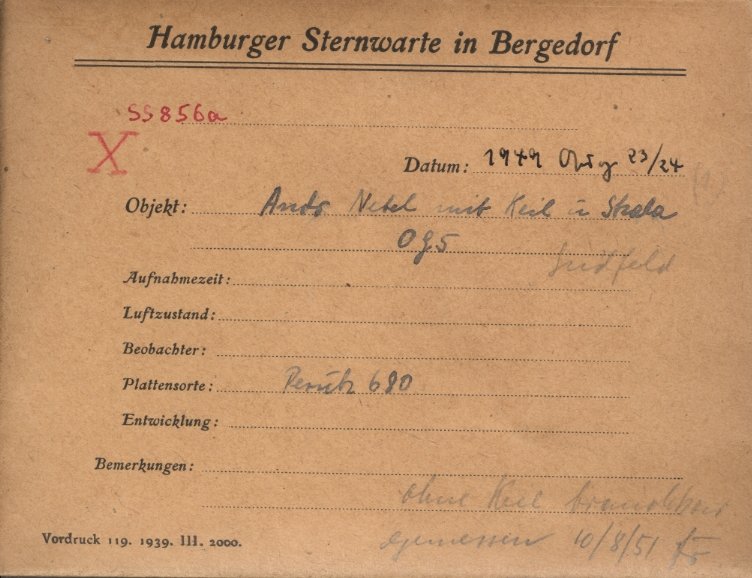 Hamburger Sternwarte in Bergedorf
SS856a
X
Datum: 1949 23/24
Objekt: Andr. Nebel mit Keil u
OG5
Südfeld
Aufnahmezeit:
Luftzustand:
Beobachter:
Plattensorte: Perutz 680
Entwicklung:
Bemerkungen:
ohne Keil brauchbar
gemessen 10/8/51
Vordruck 119. 1939. III. 2000.